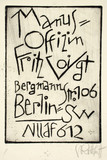 Manus=
Offizin
Fritz Voigt
Bergmannstr. 106
Berlin=SW
Nllaf 612